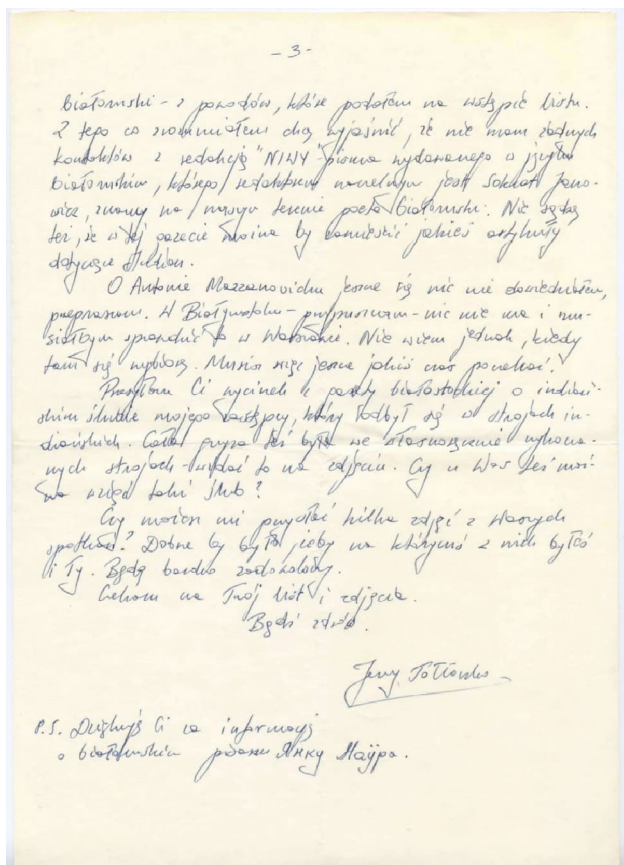 - 3 -
białoruski - z powodów, które podałem na wstępie listu.
Z tego co zrozumiałem chcę wyjaśnić, że nie mam żadnych
kontaktów z redakcją "NIWY" - pisma wydawanego w języku
białoruskim, którego redaktorem naczelnym jest Sokrat Jano-
wicz, znany na naszym terenie poeta białoruski. Nie sądzę
też, że w tej gazecie można by zamieścić jakieś artykuły
dotyczące Indian.
O Antonie Mazzanovichu jeszcze się nic nie dowiedziałem,
przepraszam. W Białymstoku - przypuszczam - nic nie ma i mu-
siałbym sprawdzić to w Warszawie. Nie wiem jednak, kiedy
tam się wybiorę. Musisz więc jeszcze jakiś czas poczekać.
Przesyłam Ci wycinek z gazety białostockiej o indiań-
skim ślubie mojego zastępcy, który odbył się w strojach in-
diańskich. Cała grupa też była we własnoręcznie wykona-
nych strojach - widać to na zdjęciu. Czy u Was też moż-
na wziąć taki ślub?
Czy możesz mi przysłać kilka zdjęć z Waszych
spotkań? Dobrze by było, żeby na którymś z nich byłeś
i Ty. Będę bardzo zadowolony.
Czekam na Twój list i zdjęcia.
Bądź zdrów.
Jerzy
P.S. Dziękuję Ci za informację
o białoruskim pisarzu Янку Маўра.